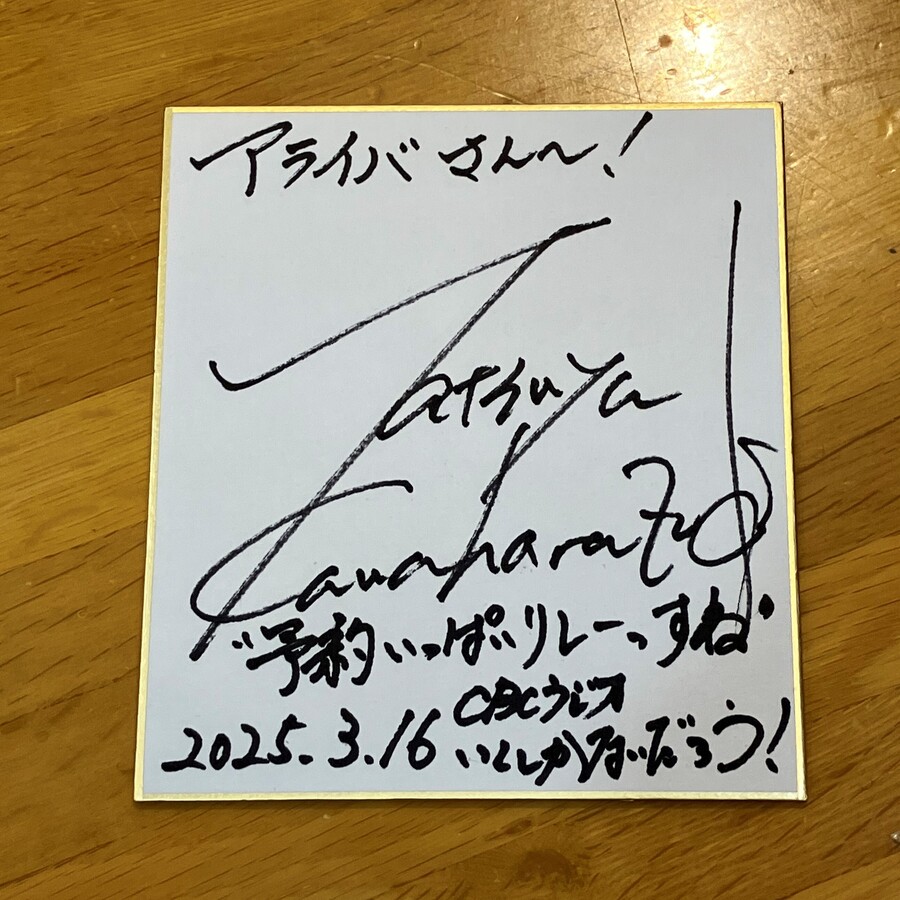 アライバさん〜!
Tatsuya
Kawahara
"予約いっぱいリレーっすね"
CBCラジオ
2025.3.16 いくしかないだろう!